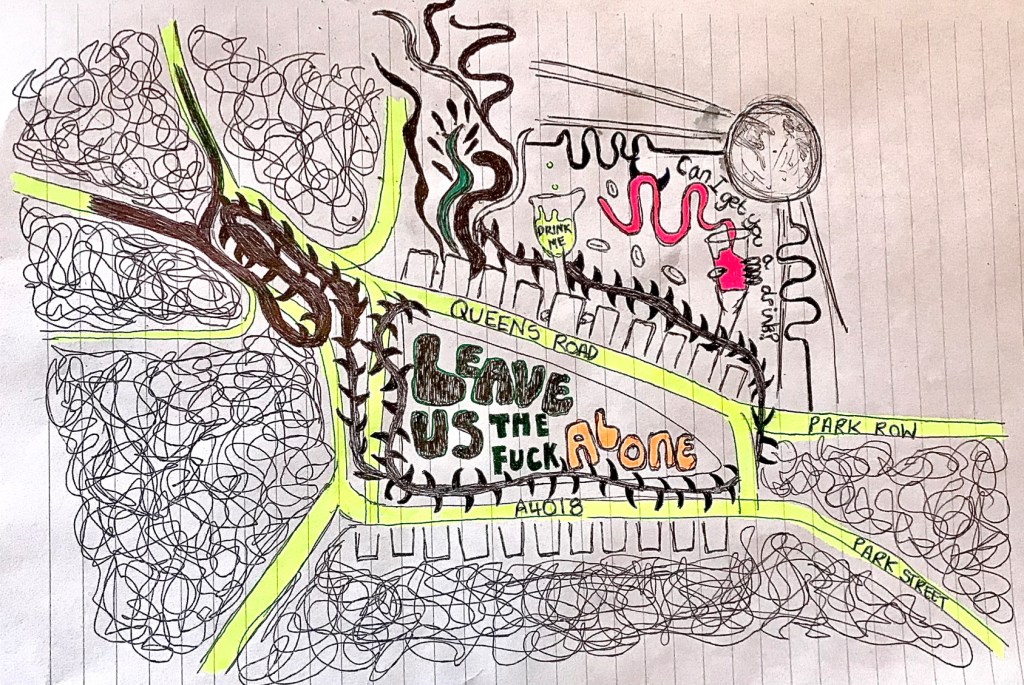 Can I get you
a drink?
DRINK
ME
QUEENS ROAD
LEAVE
US THE
FUCK ALONE
PARK ROW
A4018
PARK STREET